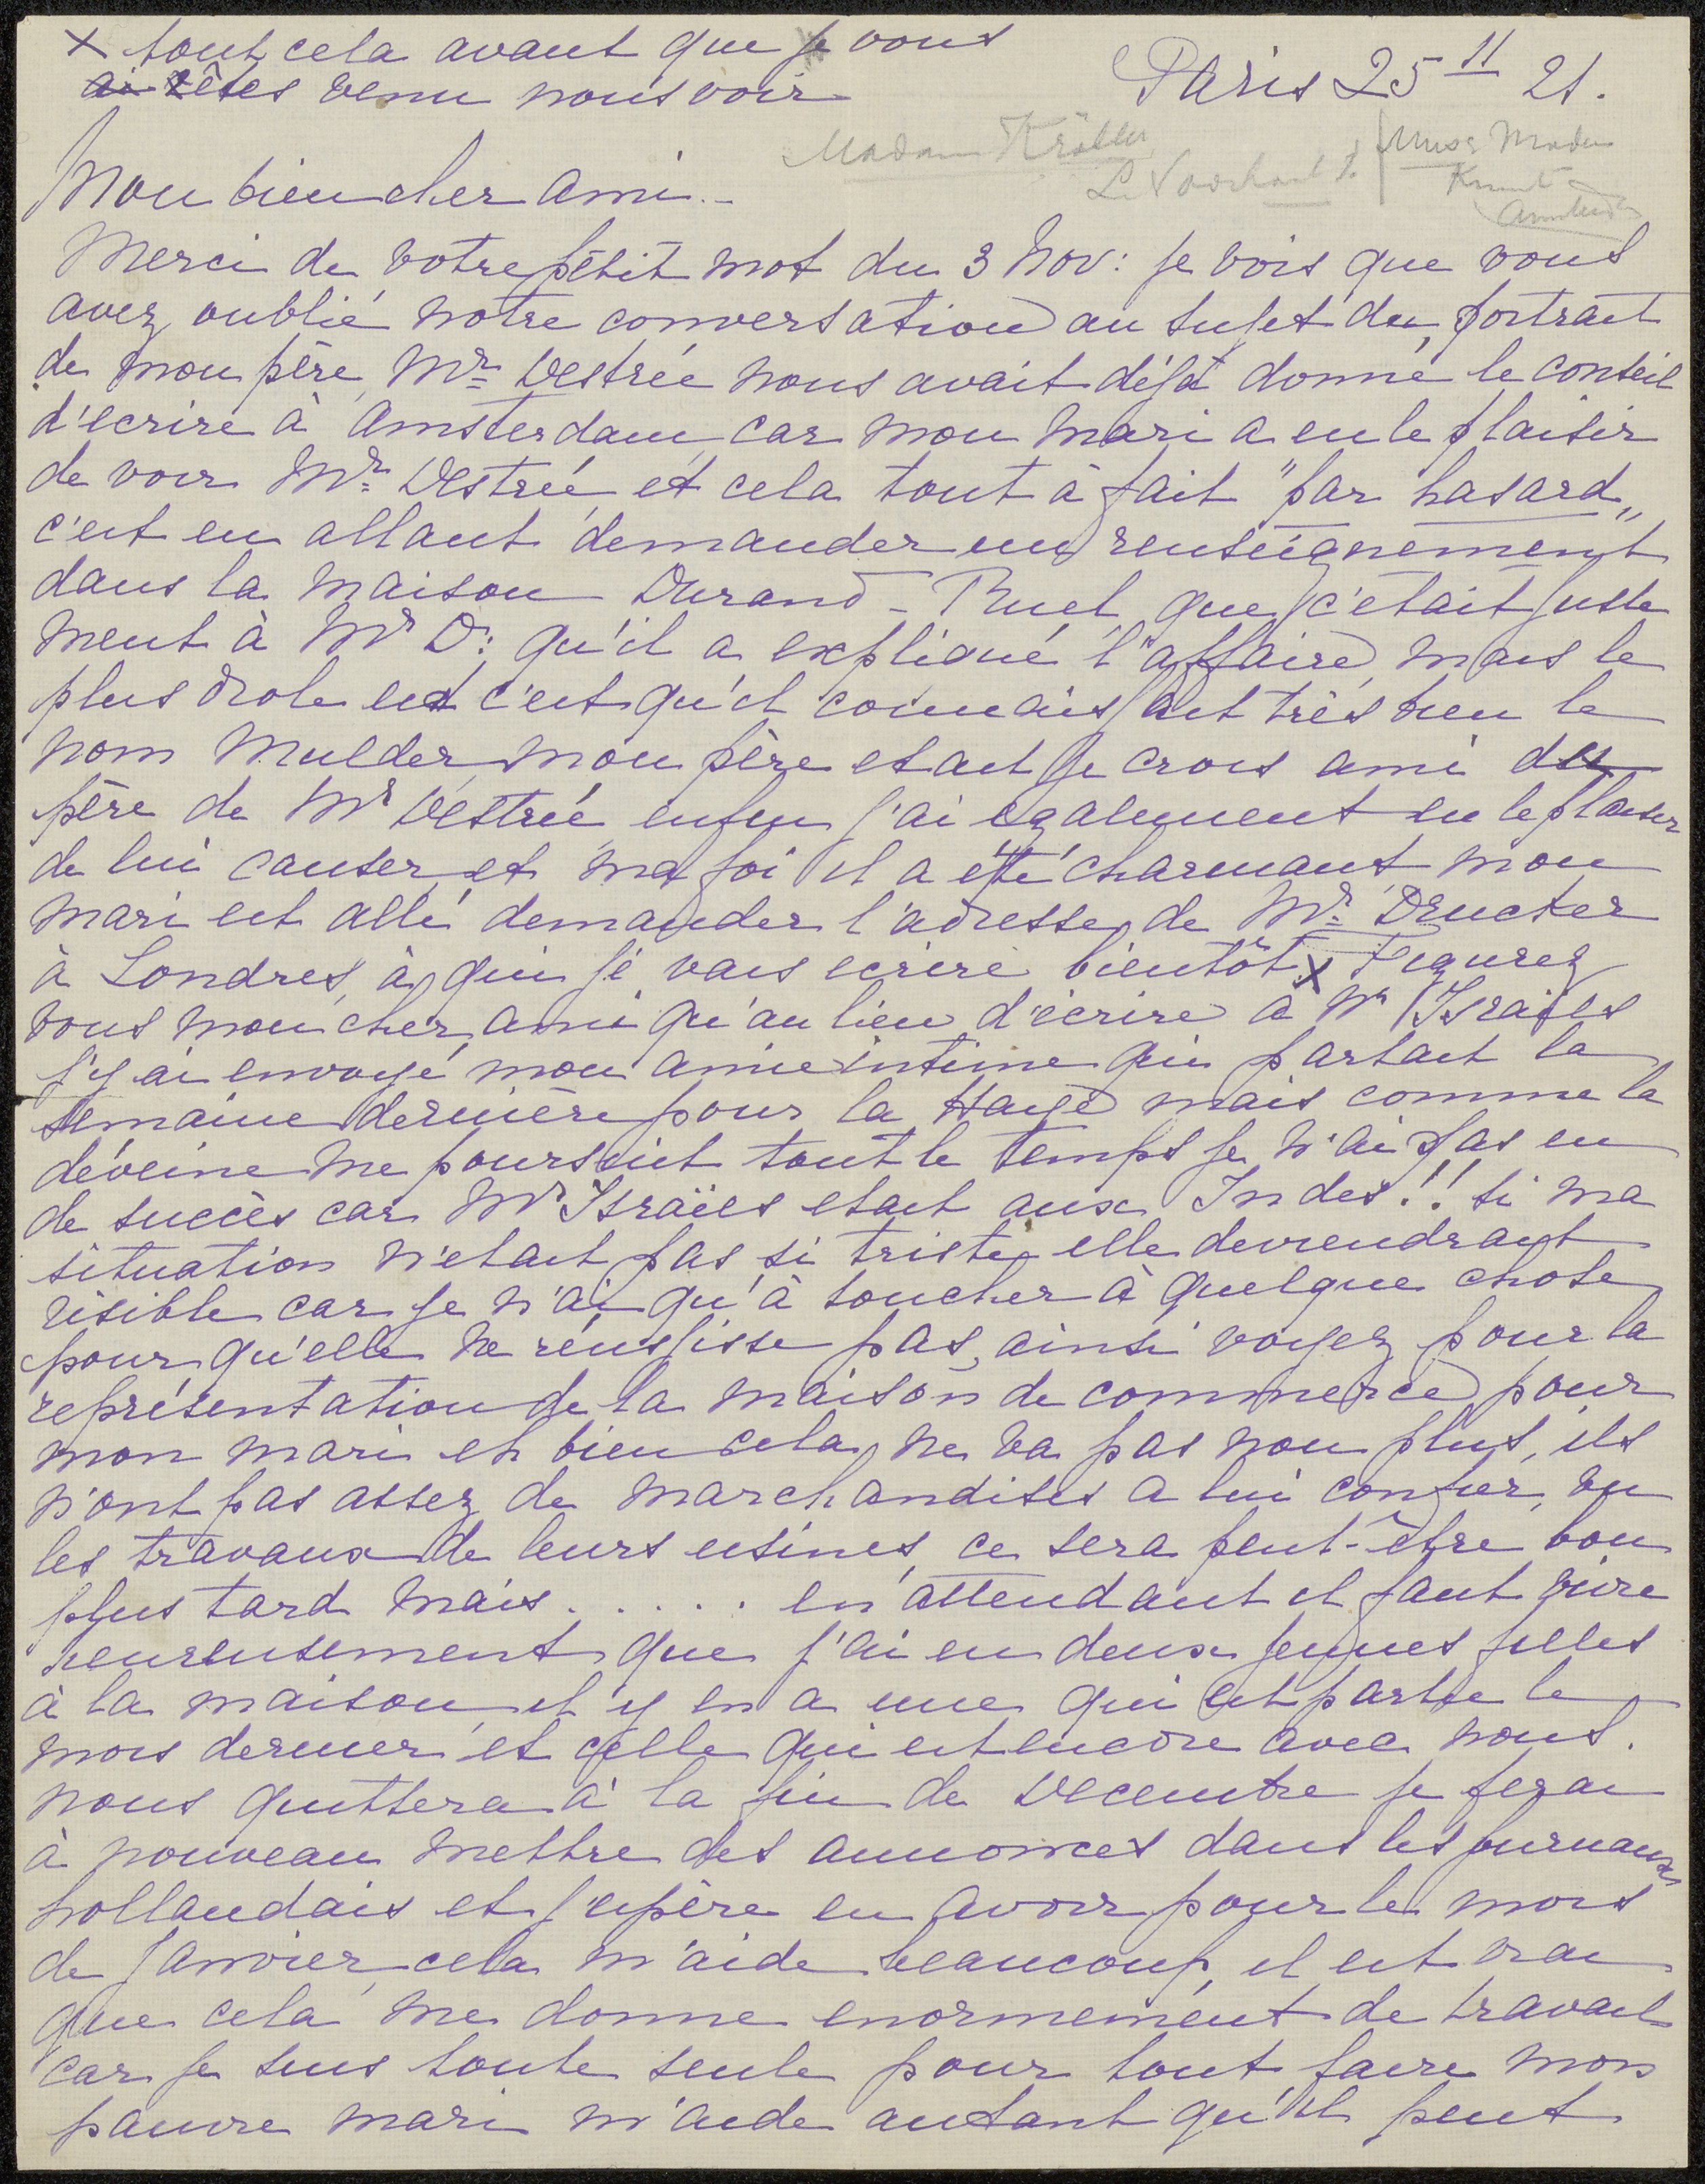 x tout cela avant que je vous
ai êtes venu nous voir
Paris 25 11 21.
Madame Kröller
L. Voorhout
Mus. Modern
Kunst
Mon bien cher ami.-
Merci de votre petit mot du 3 Nov: je vois que vous
avez oublié notre conversation au sujet du portrait
de mon père, Mr Destrée nous avait déjà donné le conseil
d'ecrire à Amsterdam, car mon mari a eu le plaisir
de voir Mr Destrée, et cela tout à fait "par hasard„
c'est en allant demander un renseignement
dans la maison Durand-Ruel que c'etait juste
ment à Mr D: qu'il a expliqué l'affaire, mais le
plus drole est c'est qu'il connaissait très bien le
nom Mulder, mon père etait je crois ami du
père de Mr Destrée enfin j'ai également eu le plaisir
de lui causer, et ma foi il a été charmant mon
mari est allé demander l'adresse de Mr Drucker
à Londres, à qui je vais ecrire bientôt x Figurez
vous mon cher ami qu'au lieu d'écrire à Mr Israëls
j'y ai envoyé mon amie intime qui partait la
semaine dernière pour la Haye mais comme la
déveine me poursuit tout le temps je n'ai pas eu
de succès car Mr Israëls etait aux Indes!! si ma
situation n'etait pas si triste, elle deviendrait
risible car je n'ai qu'à toucher à quelque chose
pour qu'elle ne réussisse pas, ainsi voyez pour la
représentation de la maison de commerce pour
mon mari eh bien cela ne va pas non plus, ils
n'ont pas assez de marchandises a lui confier, vu
les travaux de leurs usines, ce sera peut-être bon
plus tard mais..... en attendant il faut vivre
heureusement que j'ai eu deux jeunes filles
à la maison, il y en a une qui est partie le
mois dernier et celle qui est encore avec nous.
nous quittera à la fin de Decembre je ferai
à nouveau mettre des annonces dans les journaux
hollandais et j'espère en avoir pour le mois
de Janvier, cela m'aide beaucoup, il est vrai
que cela me donne enormement de travail
car je suis toute seule pour tout faire mon
pauvre mari m'aide autant qu'il peut